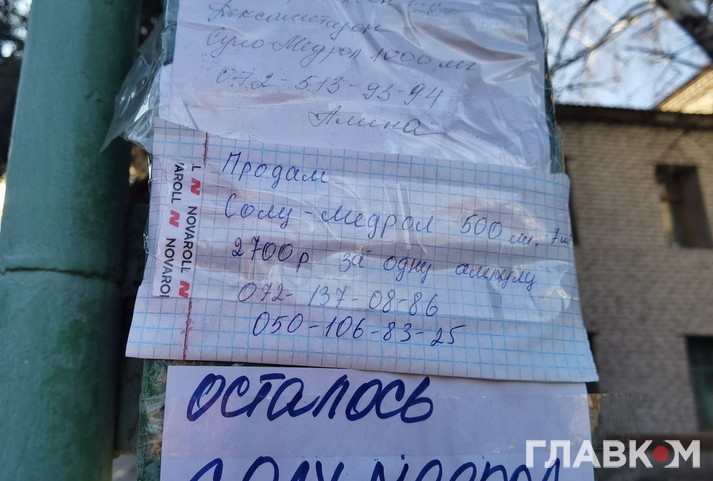 Дексаметазон
Суло Медрол 1000 мг
072-513-93-94
Алина
Продам
Солу-медрол 500 мг. 7
2700р за одну ампулу
072-137-08-86
050-106-83-25
NOVAROLL
NOVAROLL
осталось
солу медрол
ГЛАВКОМ